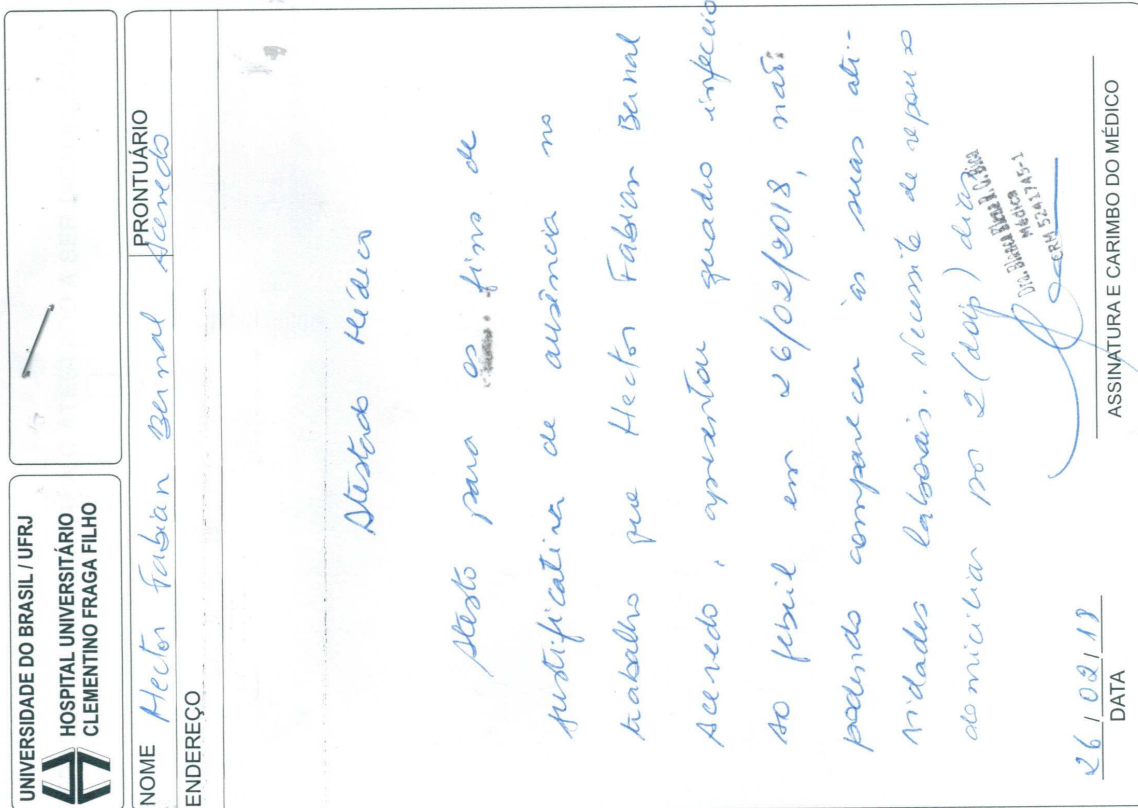 UNIVERSIDADE DO BRASIL / UFRJ
HOSPITAL UNIVERSITÁRIO
CLEMENTINO FRAGA FILHO
NOME Hector Fabian Bernal Acevedo
PRONTUÁRIO
ENDEREÇO
Atestado Médico
Atesto para os fins de
justificativa de ausência no
trabalho que Hector Fabian Bernal
Acevedo, apresentou quadro infeccio
so febril em 26/02/2018, não
podendo comparecer às suas ati-
vidades laborais. Necessita de repouso
domiciliar por 2 (dois) dias
Médica
CRM 5241745-1
26/02/18
DATA
ASSINATURA E CARIMBO DO MÉDICO